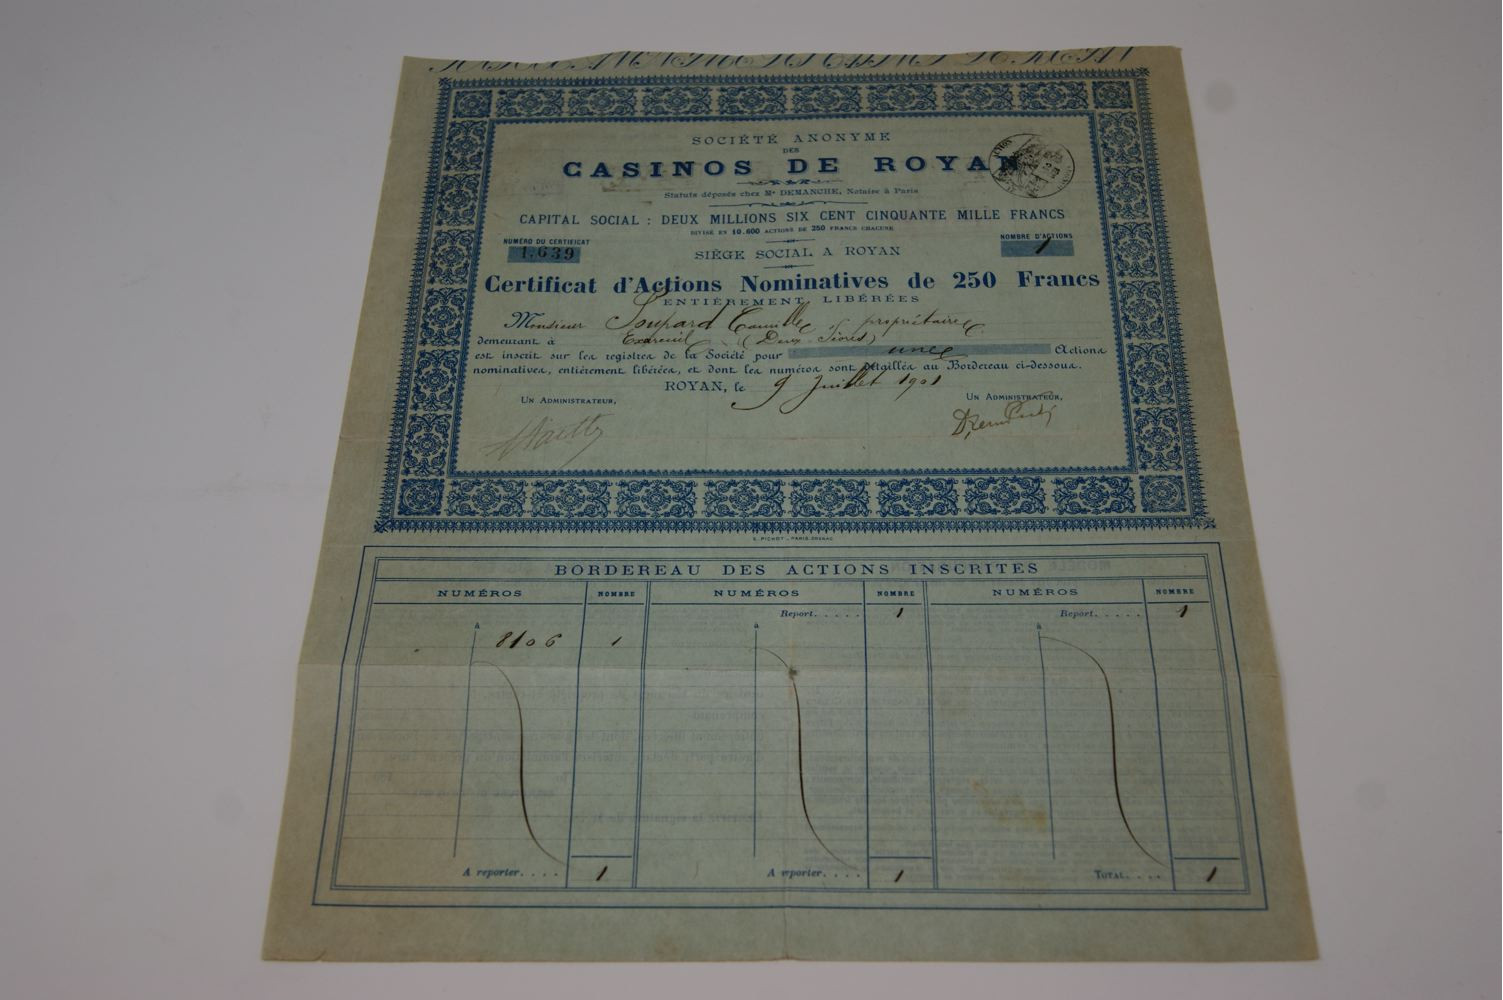 SOCIÉTÉ ANONYME
DES
CASINOS DE ROYAN
Statuts déposés chez Me DEMANCHE, Notaire à Paris
CAPITAL SOCIAL : DEUX MILLIONS SIX CENT CINQUANTE MILLE FRANCS
DIVISÉ EN 10.600 ACTIONS DE 250 FRANCS CHACUNE
NUMÉRO DU CERTIFICAT
1.639
NOMBRE D'ACTIONS
1
SIÈGE SOCIAL A ROYAN
Certificat d'Actions Nominatives de 250 Francs
ENTIÈREMENT LIBÉRÉES
Monsieur Soupard Camille propriétaire
demeurant à Exireuil (Deux-Sèvres)
est inscrit sur les registres de la Société pour une Actions
nominatives, entièrement libérées, et dont les numéros sont détaillés au Bordereau ci-dessous.
ROYAN, le 9 Juillet 1901
UN ADMINISTRATEUR,
UN ADMINISTRATEUR,
E. PICHOT - PARIS-COGNAC
BORDEREAU DES ACTIONS INSCRITES
NUMÉROS NOMBRE NUMÉROS NOMBRE NUMÉROS NOMBRE
Report..... 1 Report..... 1
à à à
8106 1
A reporter.... 1 A reporter.... 1 TOTAL.... 1